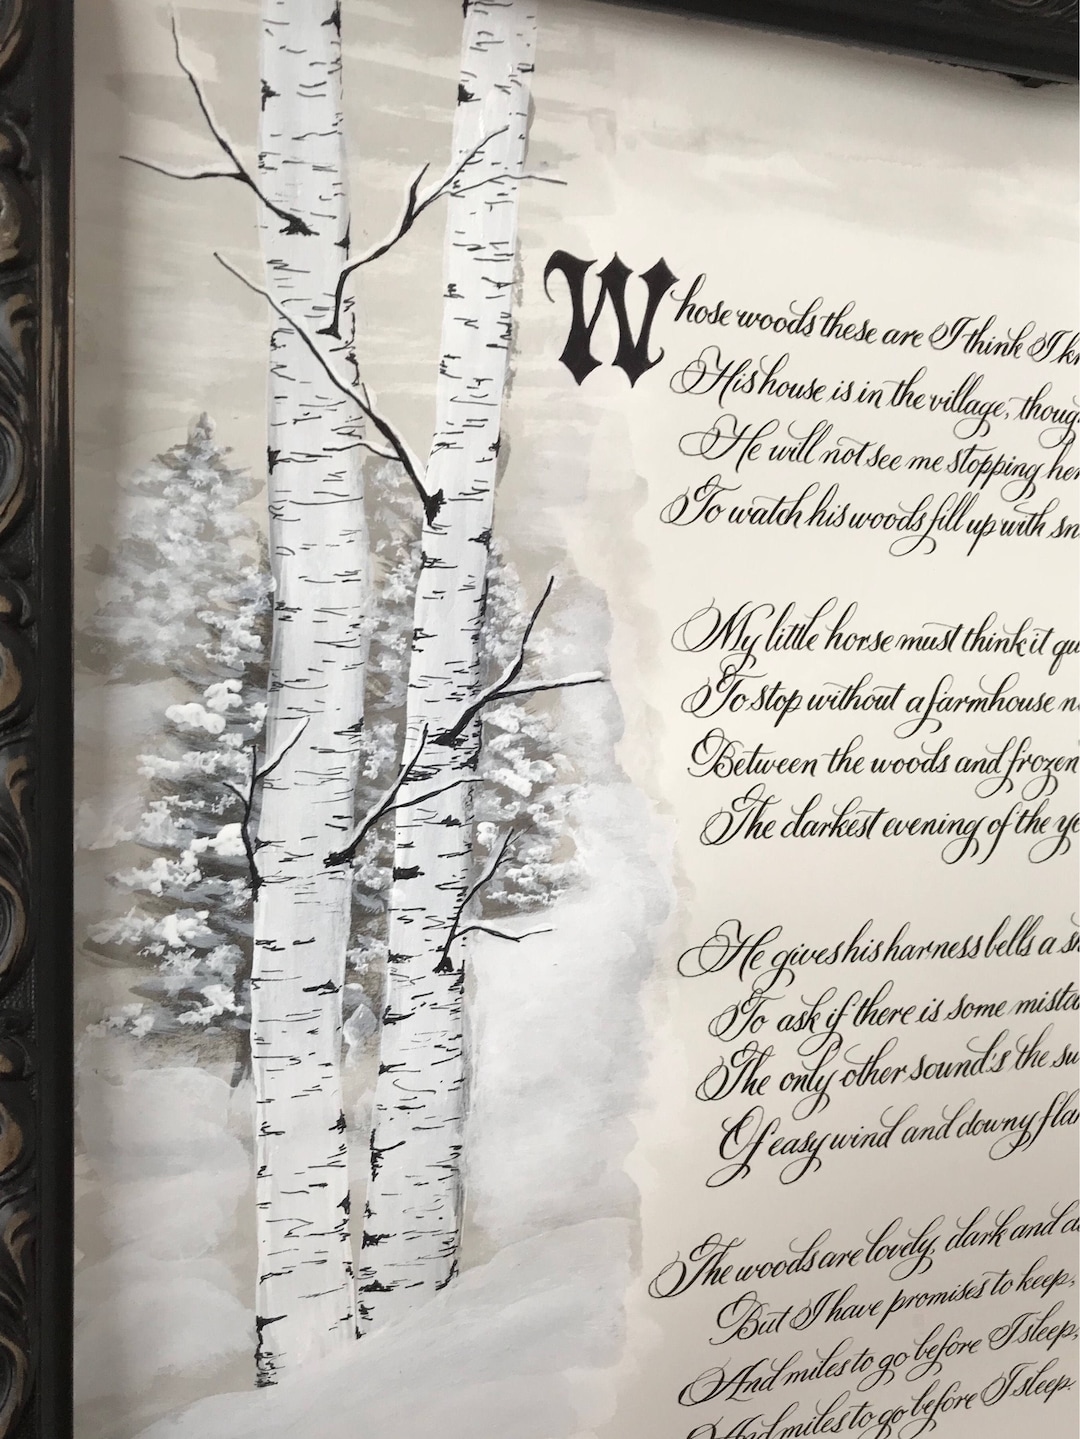 Whose woods these are I think I kn
His house is in the village, thoug
He will not see me stopping her
To watch his woods fill up with sn
My little horse must think it qu
To stop without a farmhouse n
Between the woods and frozen
The darkest evening of the ye
He gives his harness bells a sh
To ask if there is some mista
The only other sound's the sw
Of easy wind and downy flak
The woods are lovely, dark and de
But I have promises to keep,
And miles to go before I sleep,
And miles to go before I sleep.